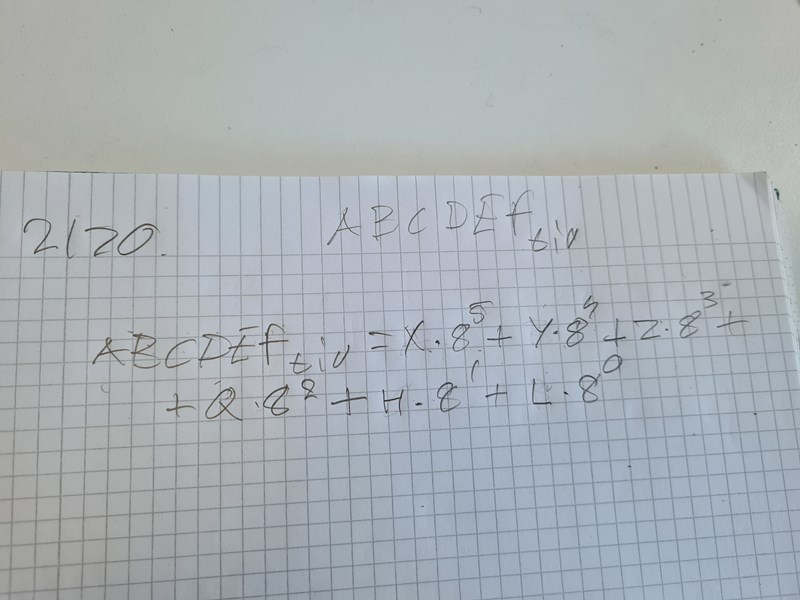 2120. ABCDEf_tio
ABCDEf_tio = X·8⁵ + Y·8⁴ + Z·8³ +
+ Q·8² + H·8¹ + L·8⁰